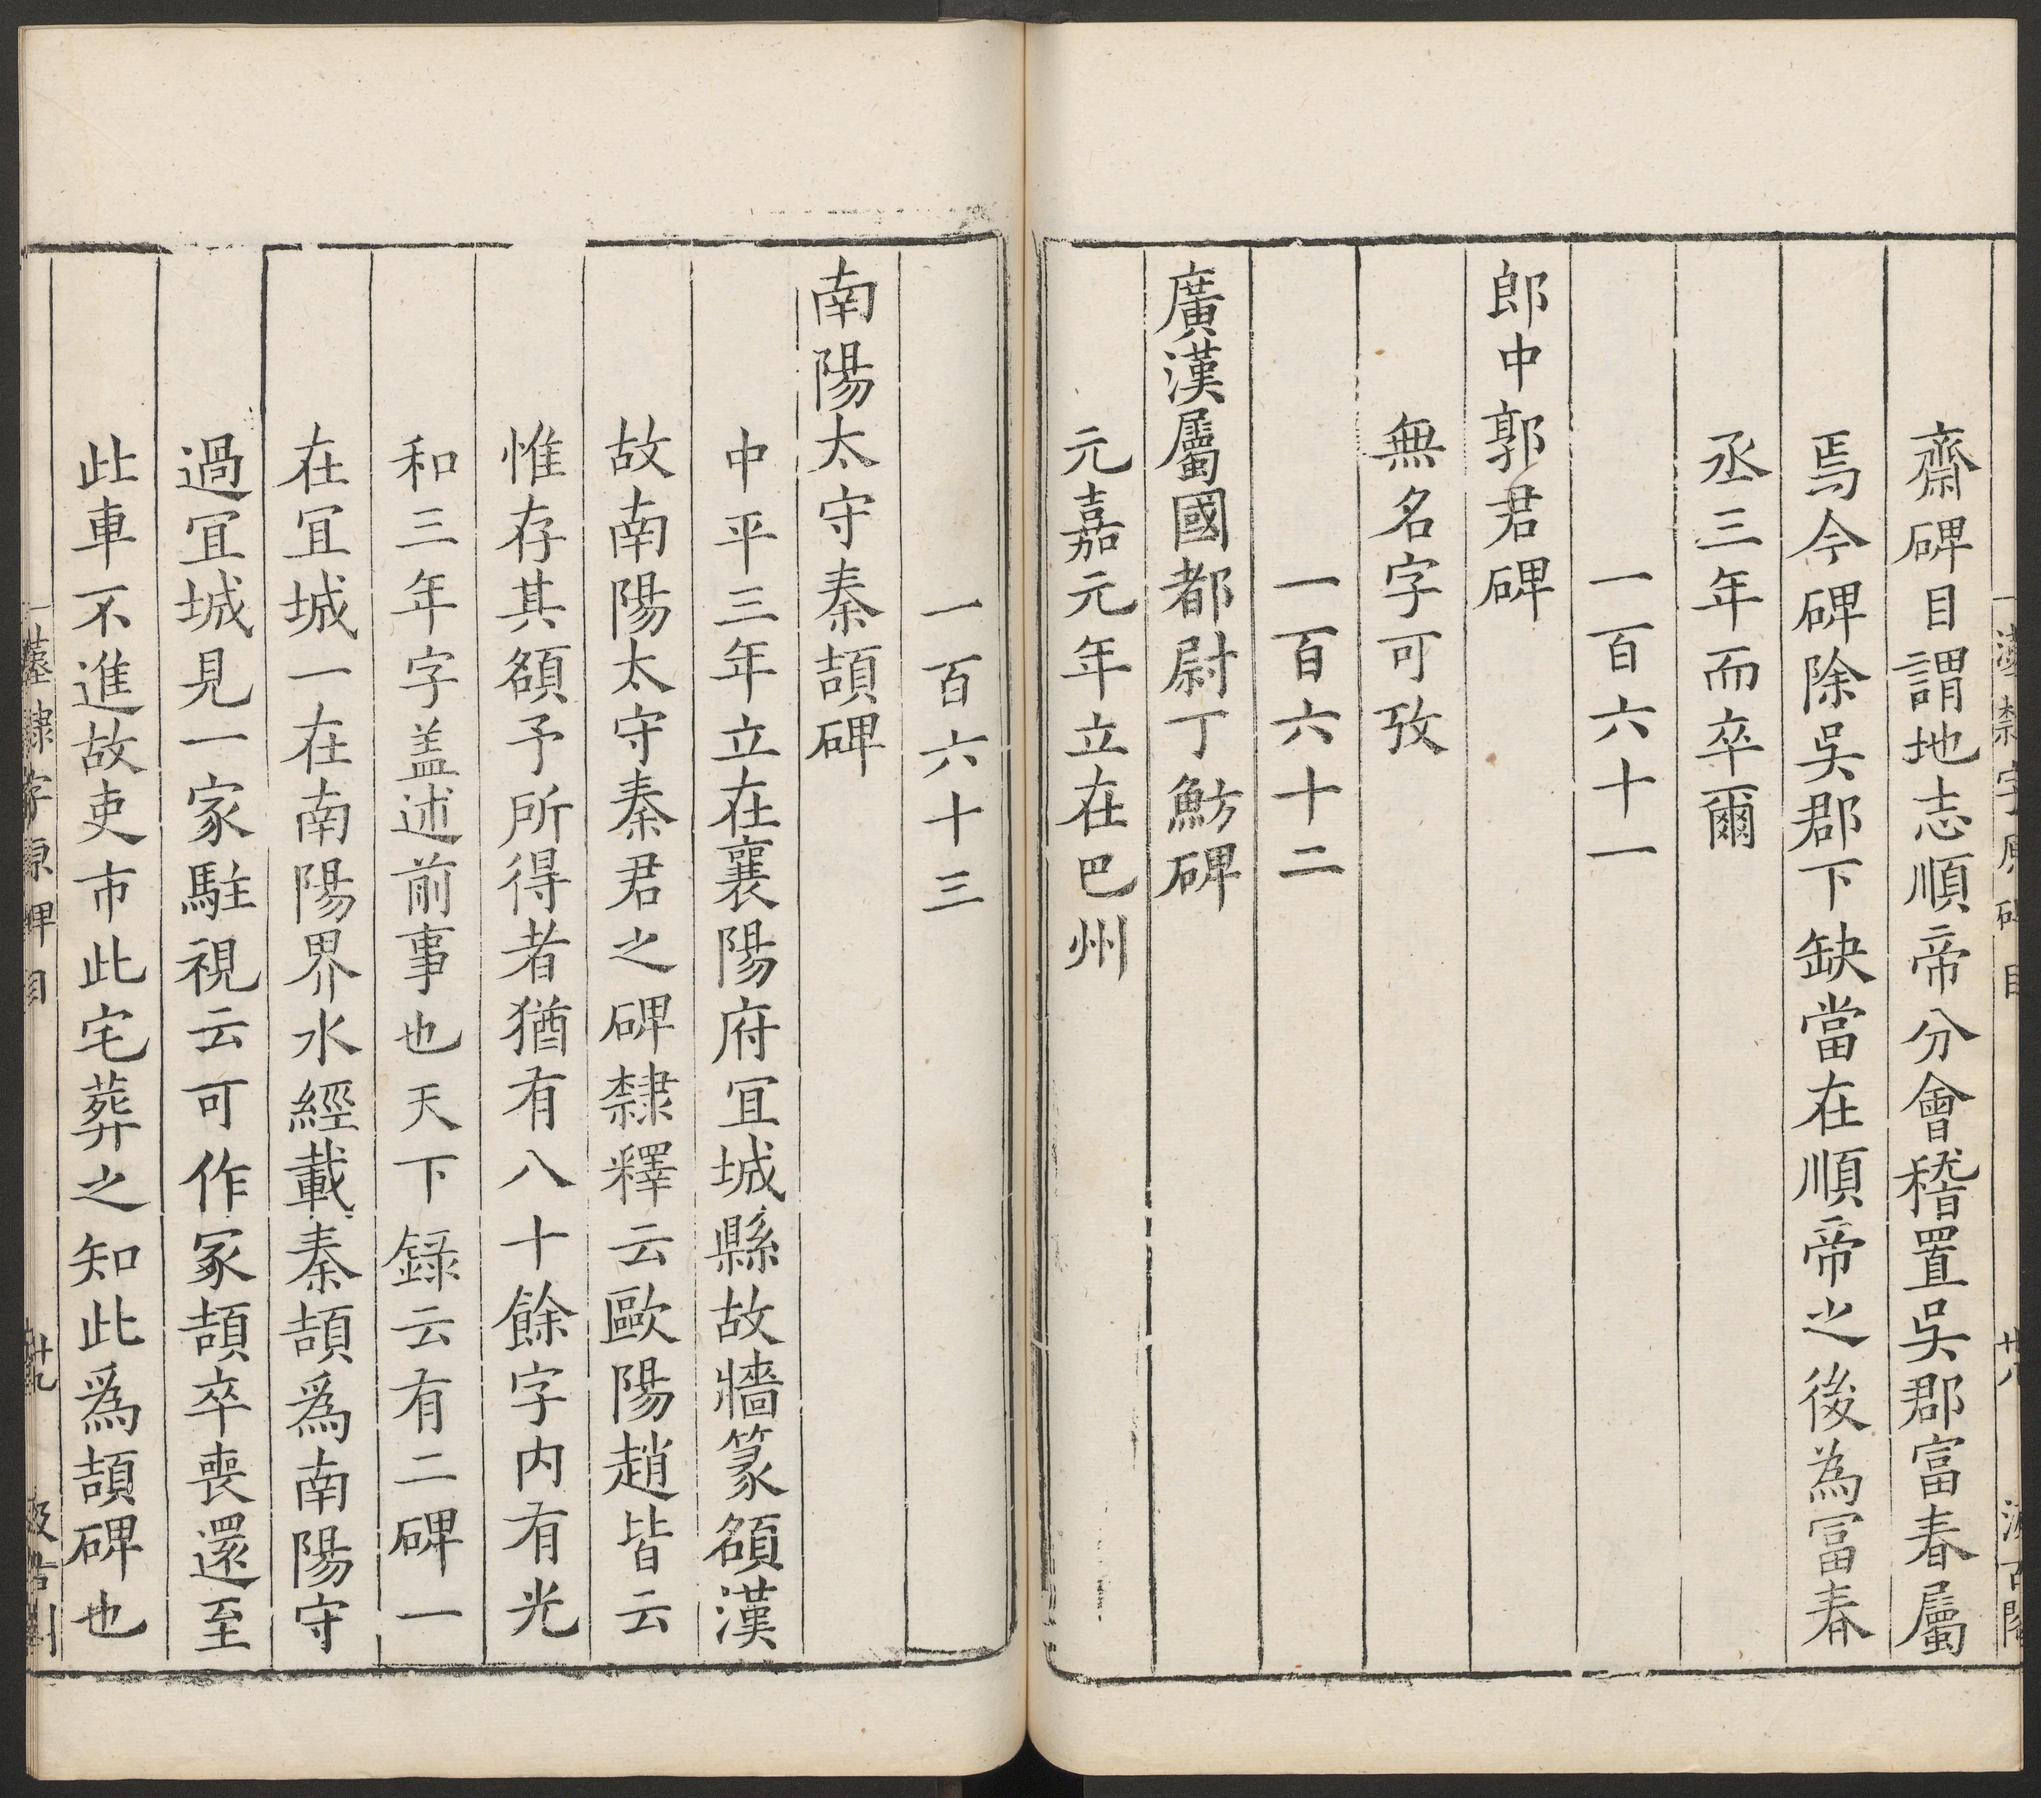 齋碑目謂地志順帝分會稽置吳郡富春屬
焉今碑除吳郡下缺當在順帝之後為冨春
丞三年而卒爾
一百六十一
郎中郭君碑
無名字可攷
一百六十二
廣漢屬國都尉丁魴碑
元嘉元年立在巴州
一百六十三
南陽太守秦頡碑
中平三年立在襄陽府冝城縣故牆篆額漢
故南陽太守秦君之碑隸釋云歐陽趙皆云
惟存其額予所得者猶有八十餘字内有光
和三年字盖述前事也天下録云有二碑一
在冝城一在南陽界水經載秦頡爲南陽守
過冝城見一家駐視云可作冢頡卒喪還至
此車不進故吏市此宅葬之知此爲頡碑也